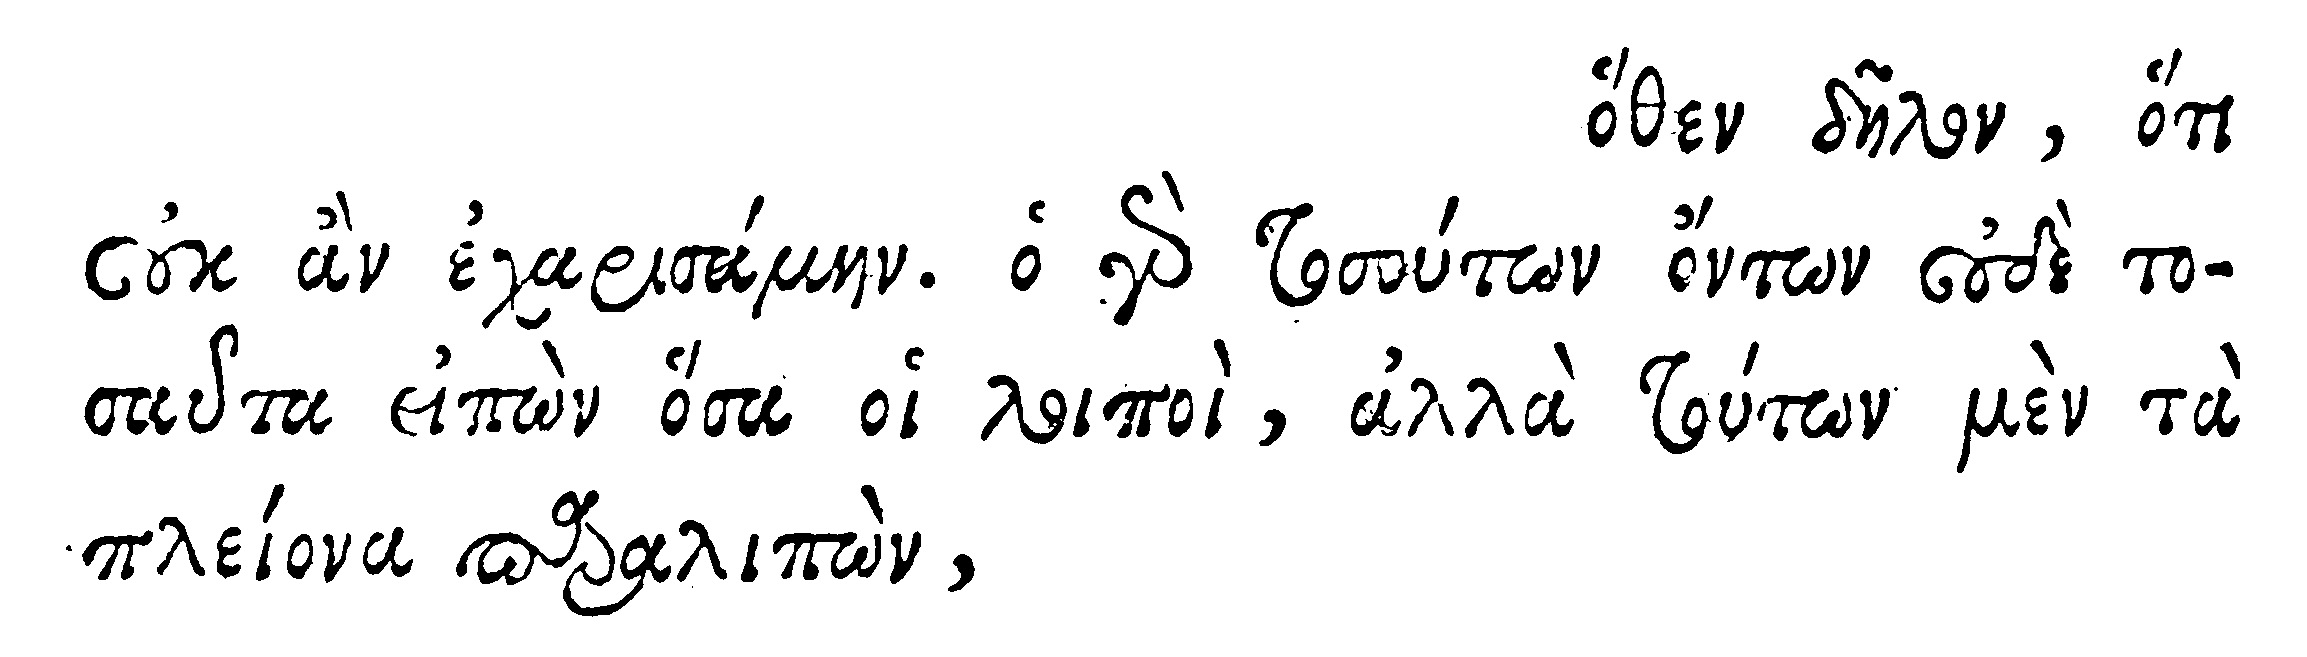 ὅθεν δῆλον, ὅτι
οὐκ ἂν ἐχαρισάμην. ὁ γὰρ τοσούτων ὄντων οὐδὲ το-
σαῦτα εἰπὼν ὅσα οἱ λοιποὶ, ἀλλὰ τούτων μὲν τὰ
πλείονα παραλιπὼν,